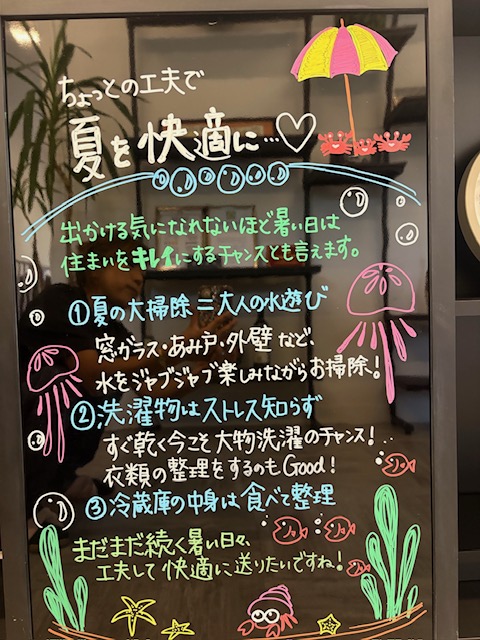 ちょっとの工夫で
夏を快適に…♡
出かける気になれないほど暑い日は
住まいをキレイにするチャンスとも言えます。
①夏の大掃除=大人の水遊び
窓ガラス・あみ戸・外壁など、
水をジャブジャブ楽しみながらお掃除!
②洗濯物はストレス知らず
すぐ乾く今こそ大物洗濯のチャンス!
衣類の整理をするのもGood!
③冷蔵庫の中身は食べて整理
まだまだ続く暑い日々、
工夫して快適に送りたいですね!